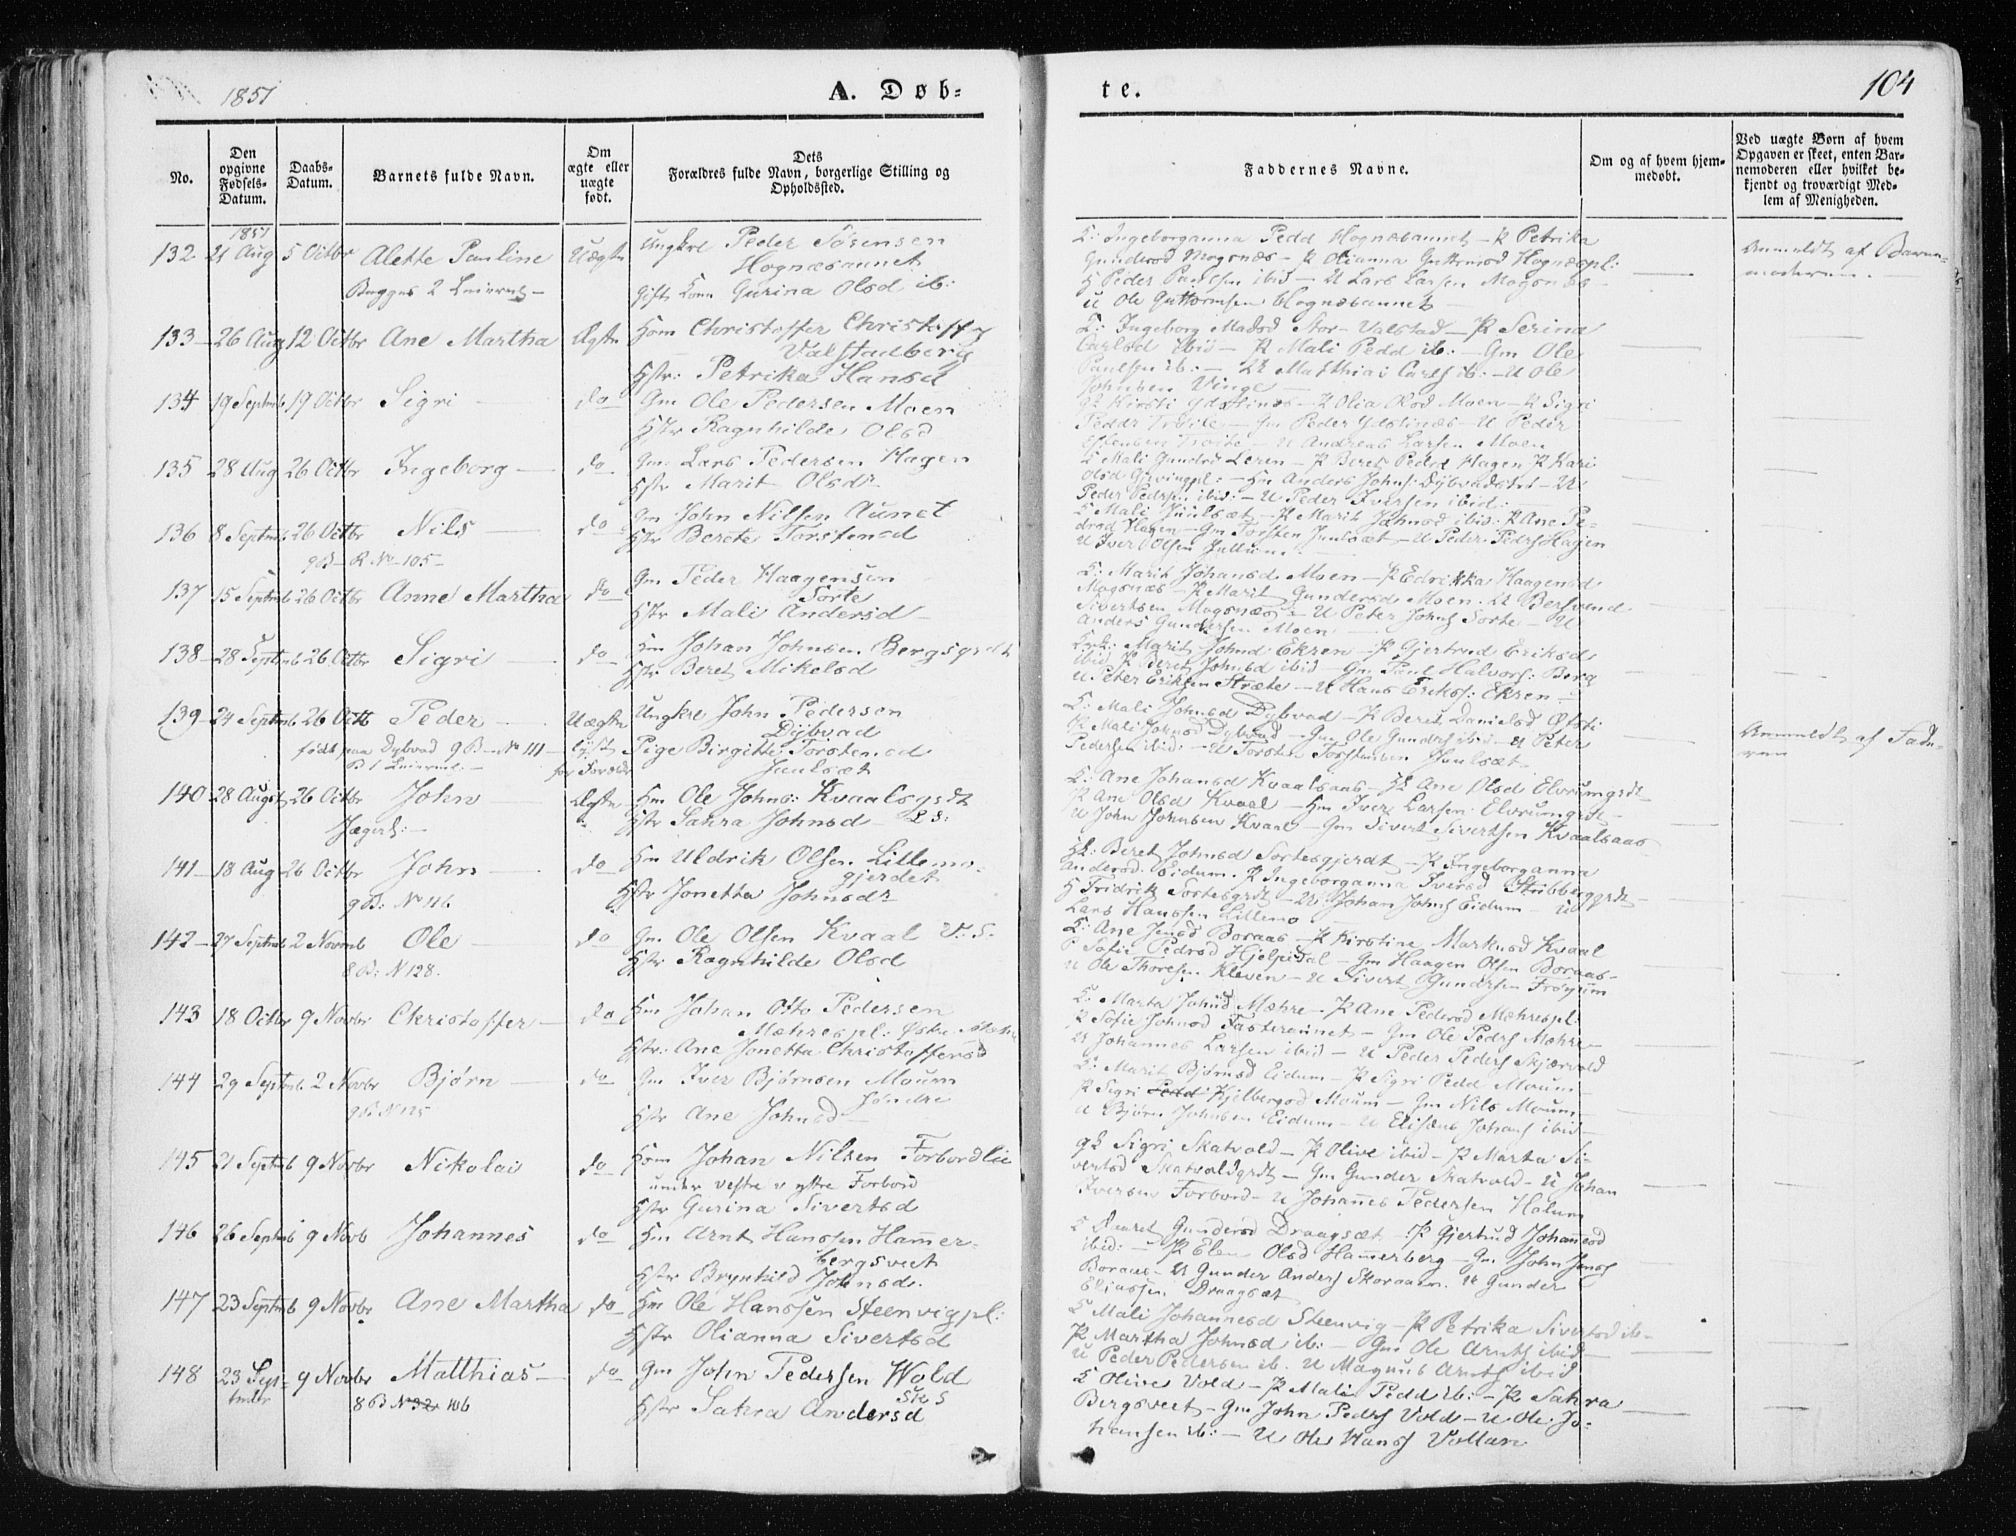 1851
A. Døb-
te.
104
No.
Den opgivne Fødsels-Datum.
Daabs-Datum.
Barnets fulde Navn.
Om ægte eller uægte født.
Dets
Forældres fulde Navn, borgerlige Stilling og
Opholdssted.
Faddernes Navne.
Om og af hvem hjem-
medøbt.
Ved uægte Børn af hvem
Opgaven er skeet, enten Bar-
nemoderen eller hvilket be-
kjendt og troværdigt Med-
lem af Menigheden.
1851
132. 21 Aug 5 Octbr Alette Pauline Uægte Ungkrl Peder Sørensen
Hognæsaunet
Begges 2 Leierm.
Gift Kone Gurina Olsd ib:
K: Ingeborganna Pedd Hognæsaunet - P Petrika
Gundersd Mogsnæs - P Olianna Guttormsd Hognæspl:
H Peder Paulsen ibid - U Lars Larsen Mogsnæs
U Ole Guttormsen Hognæsaunet
Anmeldt af Barne-
moderen.
133 26 Aug 12 Octbr Ane Martha Ægte Hom Christoffer Christoffs
Valstadberg
Hstr: Petrika Hansd
K: Ingeborg Madsd Stor-Valstad - P Serina
Carlsd ibid - P Mali Pedd ib: - Gm Ole
Paulsen ib: - U Matthias Carls ib: - U Ole
Johnsen Vinge
134 19 Septmb 19 Octbr Sigri do Gm Ole Pedersen Moen
Hstr Ragnhilde Olsd
Kirsti Ydstinæs - P Olia Olsd Moen - P Sigri
Pedds - Gm Peder Ydstinæs - U Peder
U Andreas Larsen Moen
135 28 Aug 26 Octbr Ingeborg do Gm Lars Pedersen Hagen
Hstr Marit Olsdr
K Mali Gundersd Leren - P Beret Pedsd Hagen P Kari
Olsd - Hm Anders Johns: Dybvadslet - U
Peder Pedersen ibid: - U Peder Iversen ibid:
136 8 Septmb 26 Octbr Nils do Gm John Nilsen Aunet
Hstr Berete Torstensd
9 B- R No 105-
K Mali Juulsæt - P Marit Johnsd ibid: P Ane Pe-
drsd Hagen - Gm Torsten Juulsæt - U Peder Peders Hagen
U Iver Olsen
137 15 Septmb 26 Octbr Anne Martha do Gm Peder Haagensen
Sorte
Hstr Mali Andersd
K: Marit Johansd Moen - P Edrikka Haagensd
Mogsnæs - P Marit Gundersd Moen. U Bersvend
Sivertsen Mogsnæs - U Peter Johns Sorte - U
Anders Gundersen Moen
138 28 Septmb 26 Octbr Sigri do Hm Johan Johnsen Bergsgrdt
Hstr Beret Mikelsd
Marit Johnd Ekren - P Gjertrud Eriksd
ibid P Beret Johnsd ibid - Gm Paul Halvors: Berg
U Peter Eriksen Stræte - U Hans Eriks: Ekren
139 24 Septmb 26 Octb Peder Uægte Ungkrl John Pedersen
Dybvad
født paa Dybvad 9 B- No 111
Pige Birgitte Torstensd
Juulsæt
K: Mali Johnsd Dybvad - P Beret Danielsd Øfsti
P Mali Johnsd Dybvad - Gm Ole Gunders ibid - U Peter
Pedersen ibid: - U Torsten Torstensen Juulsæt
Anmeldt af Fade-
ren
140 28 Augst 26 Octbr John Ægte Hm Ole Johns: Kvaalsgrdt
Jægert:
Hstr Sahra Johnsd L S:
K: Ane Johansd Kvaalsaas - Hk Ane Olsd Elvrumgrdt
P Ane Olsd Kvaal - Hm Iver Larsen Elvrumgrdt
U John Johnsen Kvaal - Gm Sivert Sivertsen Kvaalsaas
141 18 Aug 26 Octbr John do Hm Uldrik Olsen Lillemo-
gjerdet
9 B: No 116
Hstr Jonetta Johnsdr
Hk: Beret Johnsd Sortesgjerdt - P Ingeborganna
Andersd Eidum. P Ingeborganna Iversd Stubberggrdt
H Fridrik Sortesgrdt - U Johan Johns Eidum U
Lars Hanssen Lillemo
142 27 Septmb 2 Novmb Ole do Gm Ole Olsen Kvaal V: S.
Hstr Ragnhilde Olsd
8 B: N 128.
K: Ane Jensd Boraas - P Kirstine Markusd Kvaal
P Sofie Pedrsd Hjelpdal - Gm Haagen Olsen Boraas
U Ole Thoresen Kleven - U Sivert Gundersen Frøysum
143 18 Octbr 9 Novbr Christoffer do Hm Johan Otto Pedersen
Mæhrespl: Østre
Hstr: Ane Jonetta Christoffersd
K: Marta Johnsd Mæhre - P Ane Pedersd Mæhrespl:
P Sofie Johnsd Fasteraunet - Gm Ole Peders Mæhre
U Johannes Larsen ibid - U Peder Peders Skjærvold
144 29 Septmb 2 Novbr Bjørn do Gm Iver Bjørnsen Moum
Søndre
9 B N 125
Hstr Ane Johnsd
K: Marit Bjørnsd Eidum - P Sigri Pedd Moum
P Sigri Kjelbergsd Moum - Gm Nils Moum
U Bjørn Johnsen Eidum - U Eliseus Johans ibid
145 21 Septmb 9 Novbr Nikolai do Hom Johan Nilsen Forbordlie
under vestre v ystre Forbord
Hstr Gurina Sivertsd
gk Sigri Skatvold - P Olive ibid - P Marta Si-
vertsd Skatvoldgrdt - Gm Gunder Skatvold - U Johan
Iversen Forbord - U Johannes Pedersen Holum
146 26 Septmb 9 Novb Johannes do Hm Arnt Hanssen Hammer-
bergsveet
Hstr Brynhild Johnsd.
K Gundersd Draagsæt - P Gjertrud Johannesd
ibid: - P Elen Olsd Hammerberg - Gm John Jenss
Boraas - U Gunder Anders Skoraam. U Gunder
Eliassen Draagsæt
147 23 Septmb 9 Novbr Ane Martha do Hm Ole Hanssen Steenvigpl:
Hstr Olianna Sivertsd
K Mali Johannesd Steenvig - P Petrika Sivertsd ib-
P Martha Johnsd ib: - Gm Ole Arnts ibid-
U Peder Pedersen ib. U Magnus Arnts ibid
148 23 Sep-
tmbr 9 Novbr Matthias do Gm John Pedersen Wold
8 B N 32 106
Hstr Sahra Andersd
K Olive Vold - P Mali Pedd ib: - P Sahra
Bergsveet - Gm John Peders Vold - U Ole Jo-
hansen ib: - U Ole Hanss Vollan